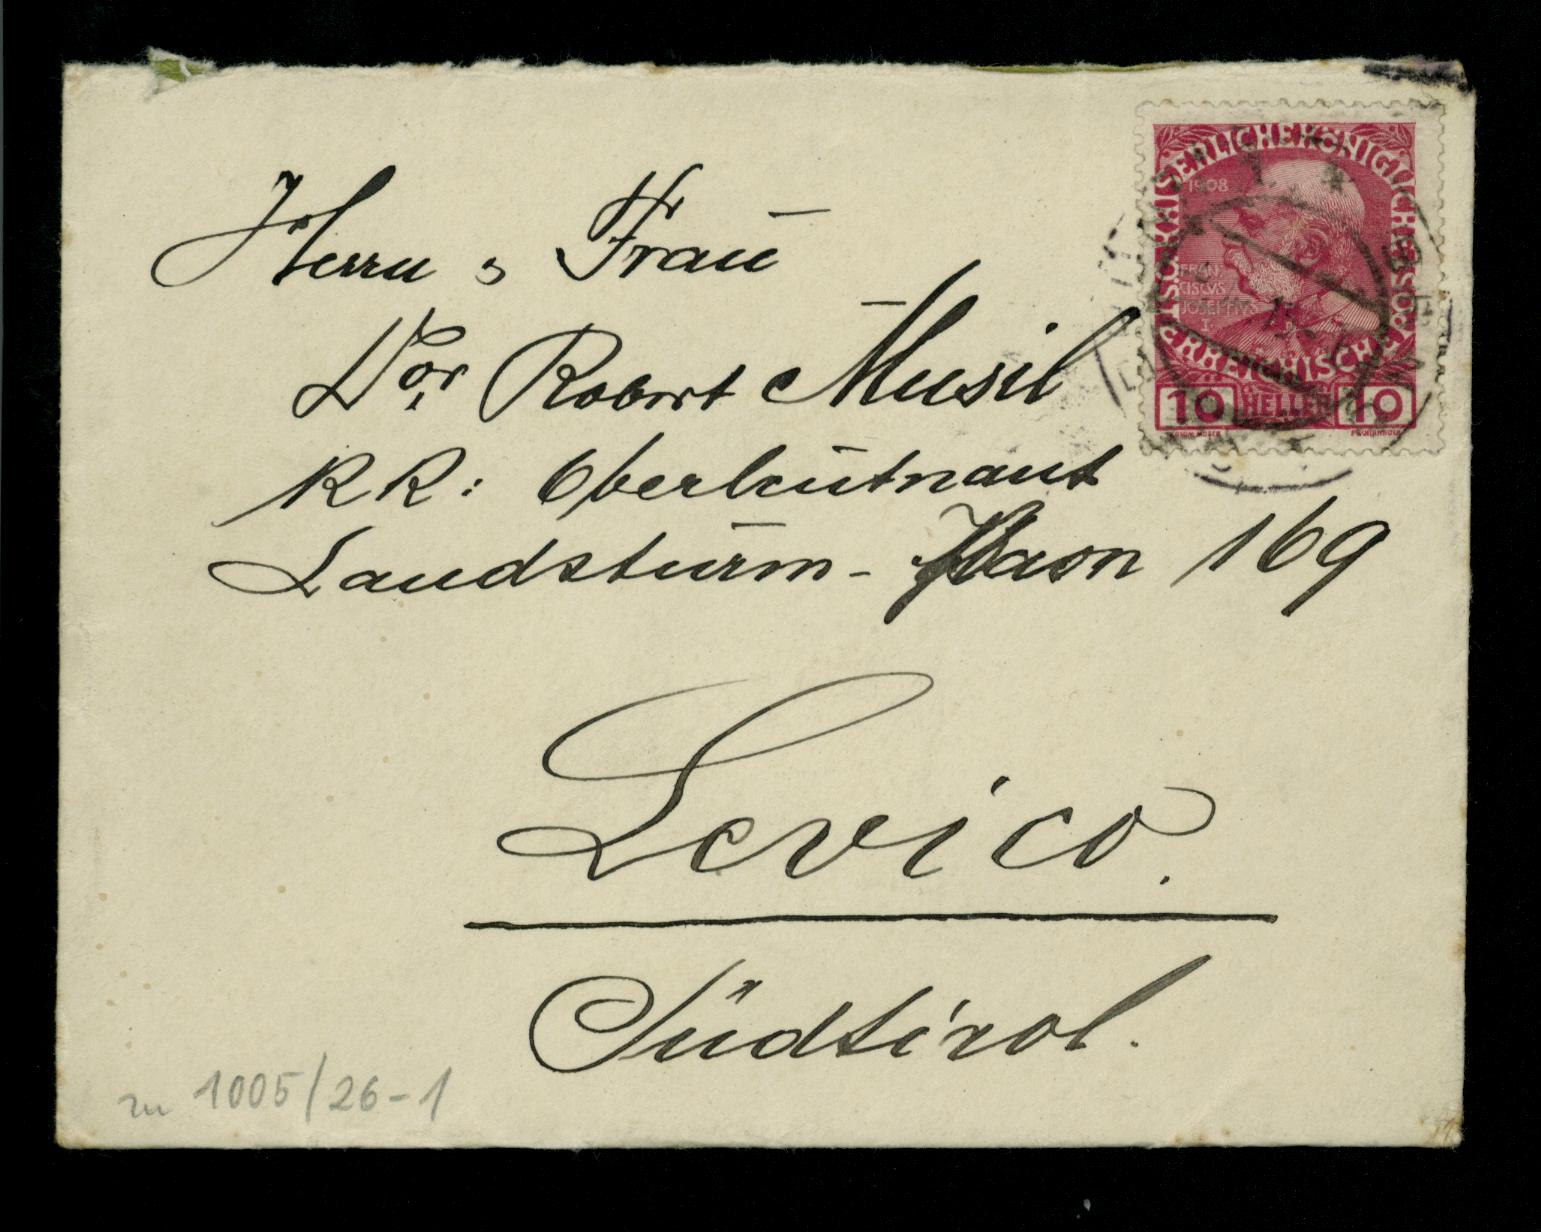 KAISERLICHE KÖNIGLICHE ÖSTERREICHISCHE POST
1908
FRAN
CISCVS
IOSEPHVS
I
10 HELLER 10
Herrn & Frau
Dor Robert Musil
KK: Oberleutnant
Landsturm-Baon 169
Levico.
Südtirol.
zu 1005/26-1